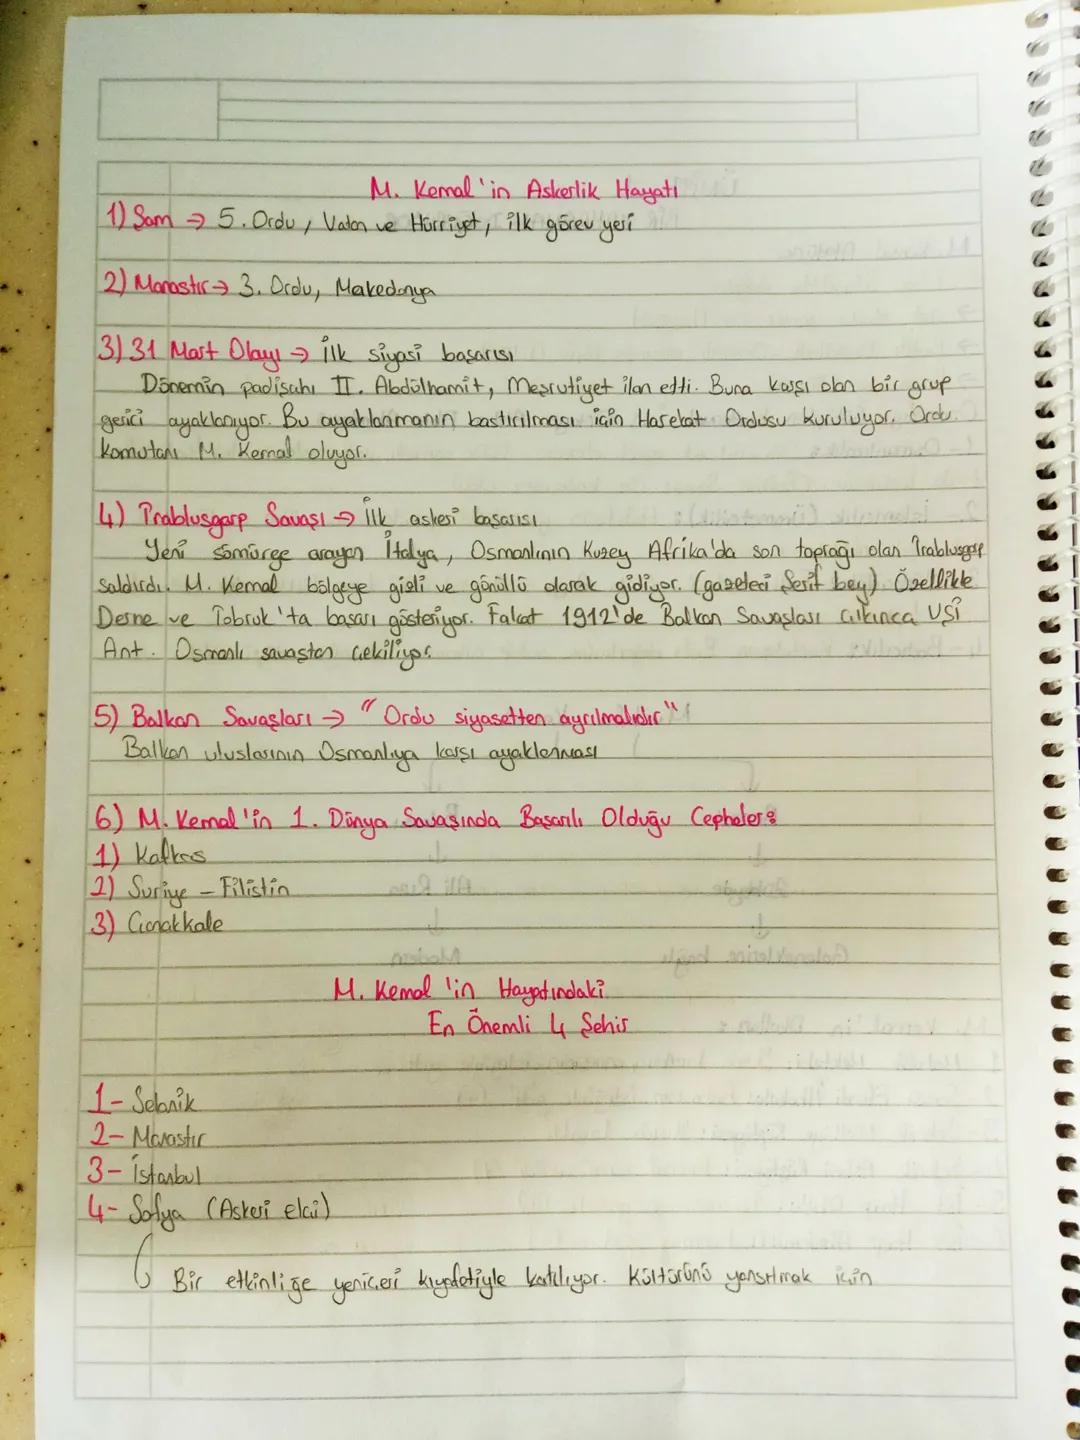 M. Kemal'in Askerlik Hayatı
1) Şam → 5. Ordu, Vatan ve Hürriyet, ilk görev yeri
2) Manastır → 3. Ordu, Makedonya
3) 31 Mart Olayı → İlk siyasi başarısı
Dönemin padişahı II. Abdülhamit, Meşrutiyet ilan etti. Buna karşı olan bir grup
gerici ayaklanıyor. Bu ayaklanmanın bastırılması için Harekat Ordusu kuruluyor. Ordu
komutanı M. Kemal oluyor.
4) Trablusgarp Savaşı → İlk askeri başarısı
Yeni sömürge arayan İtalya, Osmanlının Kuzey Afrika'da son toprağı olan Trablusgarp
saldırdı. M. Kemal bölgeye gizli ve gönüllü olarak gidiyor. (gazeteci Şerif bey) Özellikle
Derne ve Tobruk'ta başarı gösteriyor. Fakat 1912'de Balkan Savaşları çıkınca UŞİ
Ant. Osmanlı savaştan çekiliyor.
5) Balkan Savaşları → "Ordu siyasetten ayrılmalıdır"
Balkan uluslarının Osmanlıya karşı ayaklanması
6) M. Kemal'in 1. Dünya Savaşında Başarılı Olduğu Cepheler:
1) Kafkas
2) Suriye - Filistin
3) Çanakkale
M. Kemal 'in Hayatındaki
En Önemli 4 Şehir
1- Selanik
2- Manastır
3- İstanbul
4- Sofya (Askeri elçi)
Bir etkinliğe yeniçeri kıyafetiyle katılıyor. Kültürünü yansıtmak için